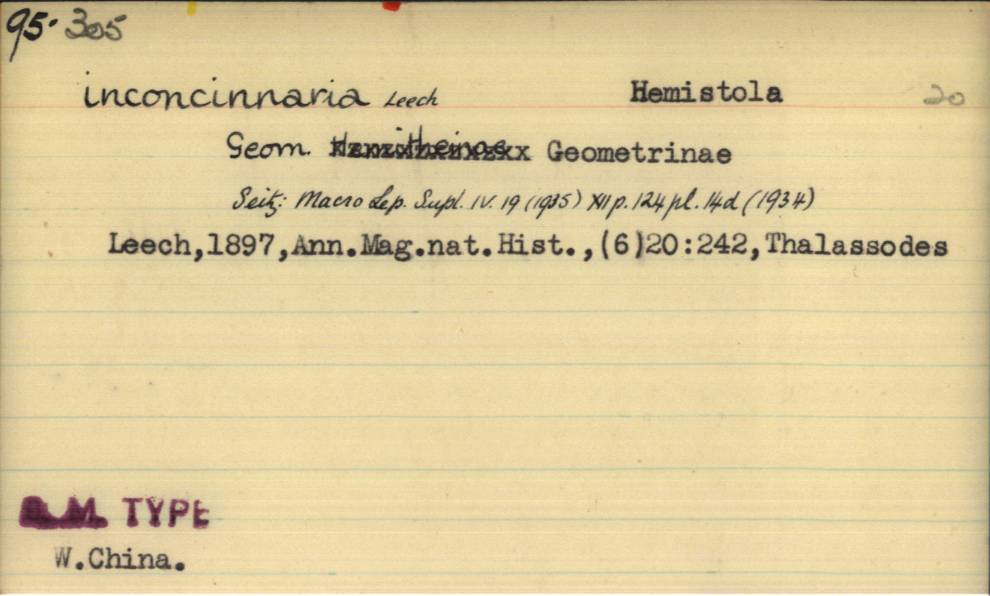 95. 305
inconcinnaria Leech Hemistola 20
Geom. Hemitheinae Geometrinae
Seitz: Macro Lep. Supl. IV. 19 (1935) XII p. 124 pl. 14d (1934)
Leech,1897,Ann.Mag.nat.Hist.,(6)20:242,Thalassodes
B.M. TYPE
W.China.